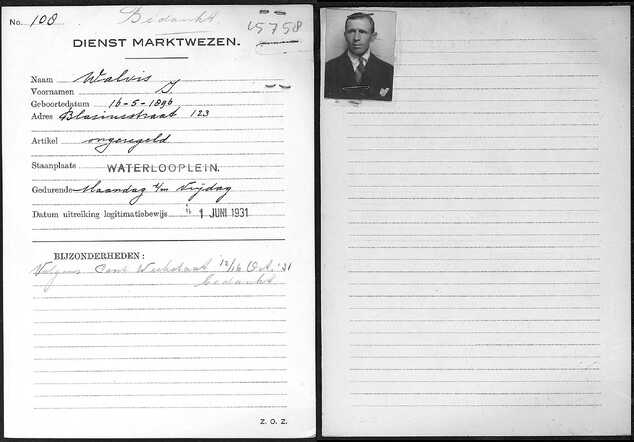 No. 108 Bedankt. 15758
DIENST MARKTWEZEN.
Naam Walvis
Voornamen J.
Geboortedatum 16-5-1896
Adres Blasiusstraat 123
Artikel ongeregeld
Staanplaats WATERLOOPLEIN.
Gedurende Maandag t/m Vrijdag
Datum uitreiking legitimatiebewijs 1 JUNI 1931
BIJZONDERHEDEN:
Volgens Cont. Weekstaat 12/16 Oct. '31
bedankt
Z. O. Z.